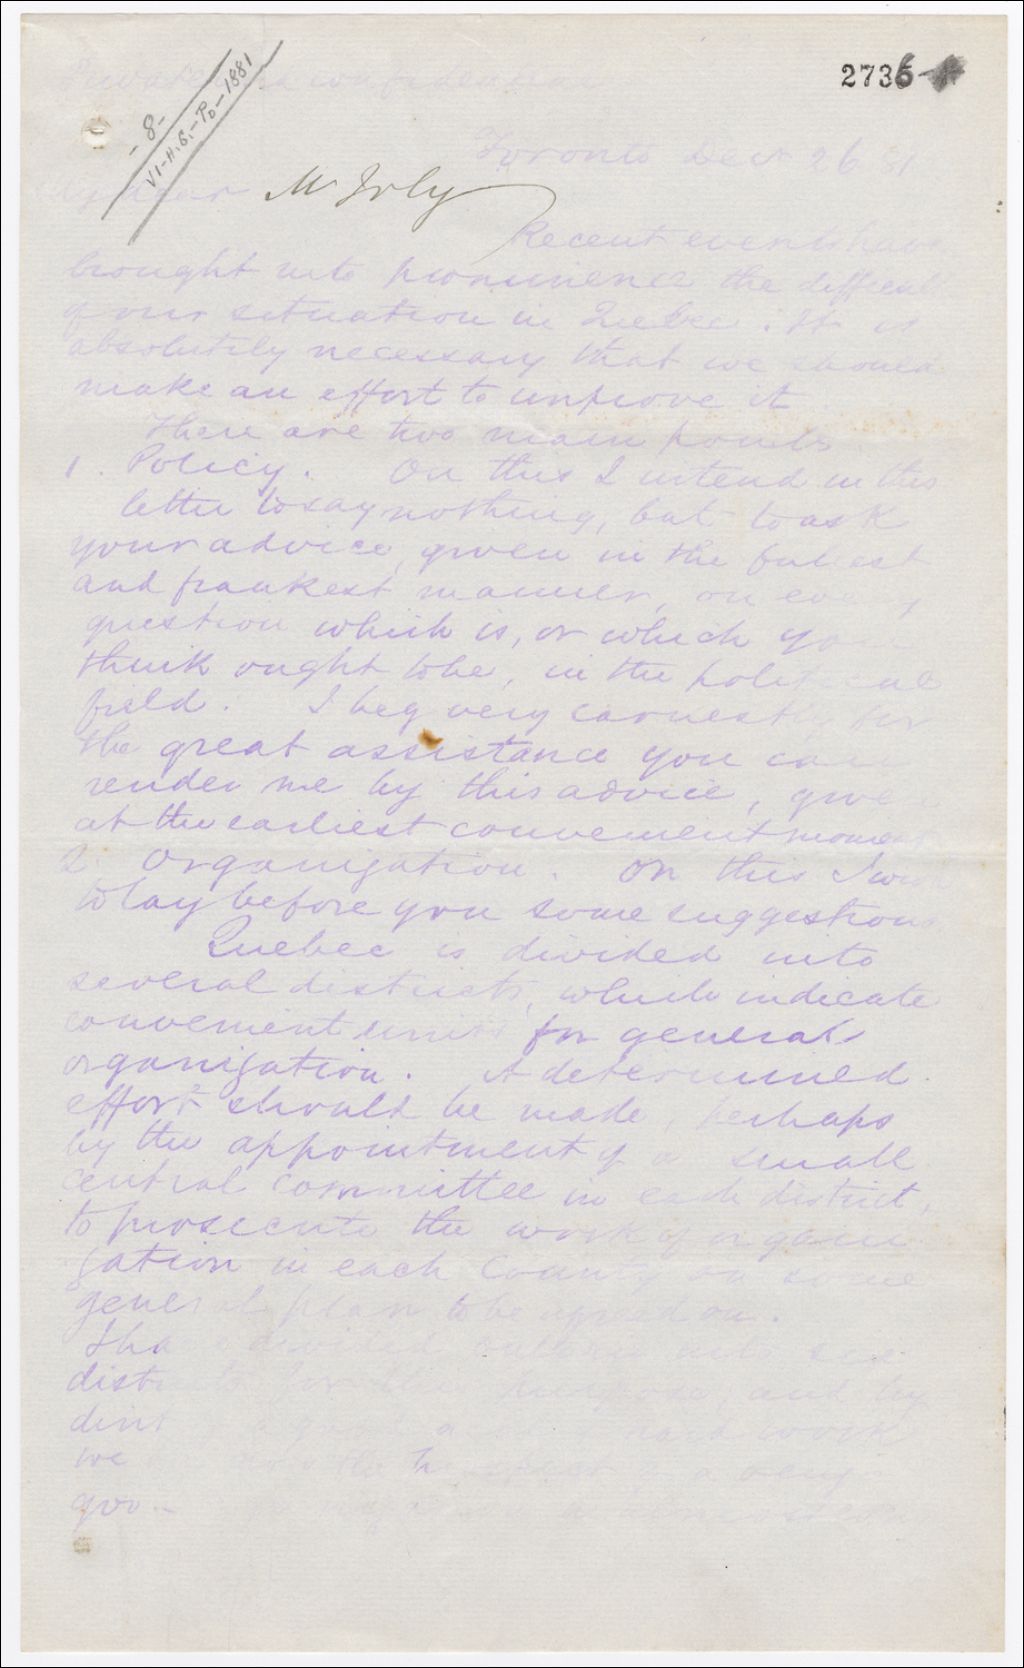 2736
-8-
VI-H.G.-Po-1881
Private and confidential
Toronto Dec 26 81
My dear Mr Joly
Recent events have
brought into prominence the difficult
of our situation in Quebec. It is
absolutely necessary that we should
make an effort to improve it
There are two main points
1. Policy. On this I intend in this
letter to say nothing, but to ask
your advice, given in the fullest
and frankest manner, on every
question which is, or which you
think ought to be, in the political
field. I beg very earnestly for
the great assistance you can
render me by this advice, given
at the earliest convenient moment
2. Organization. On this I wish
to lay before you some suggestions
Quebec is divided into
several districts, which indicate
convenient limits for general
organization. A determined
effort should be made, perhaps
by the appointment of a small
central committee in each district,
to prosecute the work of organi
zation in each County on some
general plan to be agreed on.
I have divided into
districts for this purpose, and by
dint a good hard work
we a very
goo